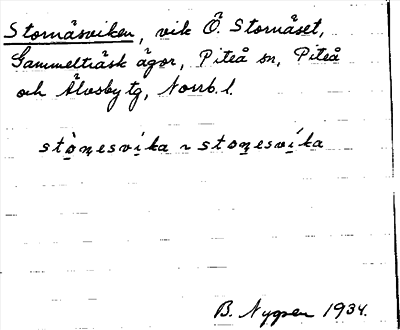 Stornäsviken, vik Ö. Stornäset,
Gammelträsk ägor, Piteå sn, Piteå
och Älvsby tg, Norrb. l.
stòṇesvi̱ka ~ stoṇesvíka
B. Nygren 1934.